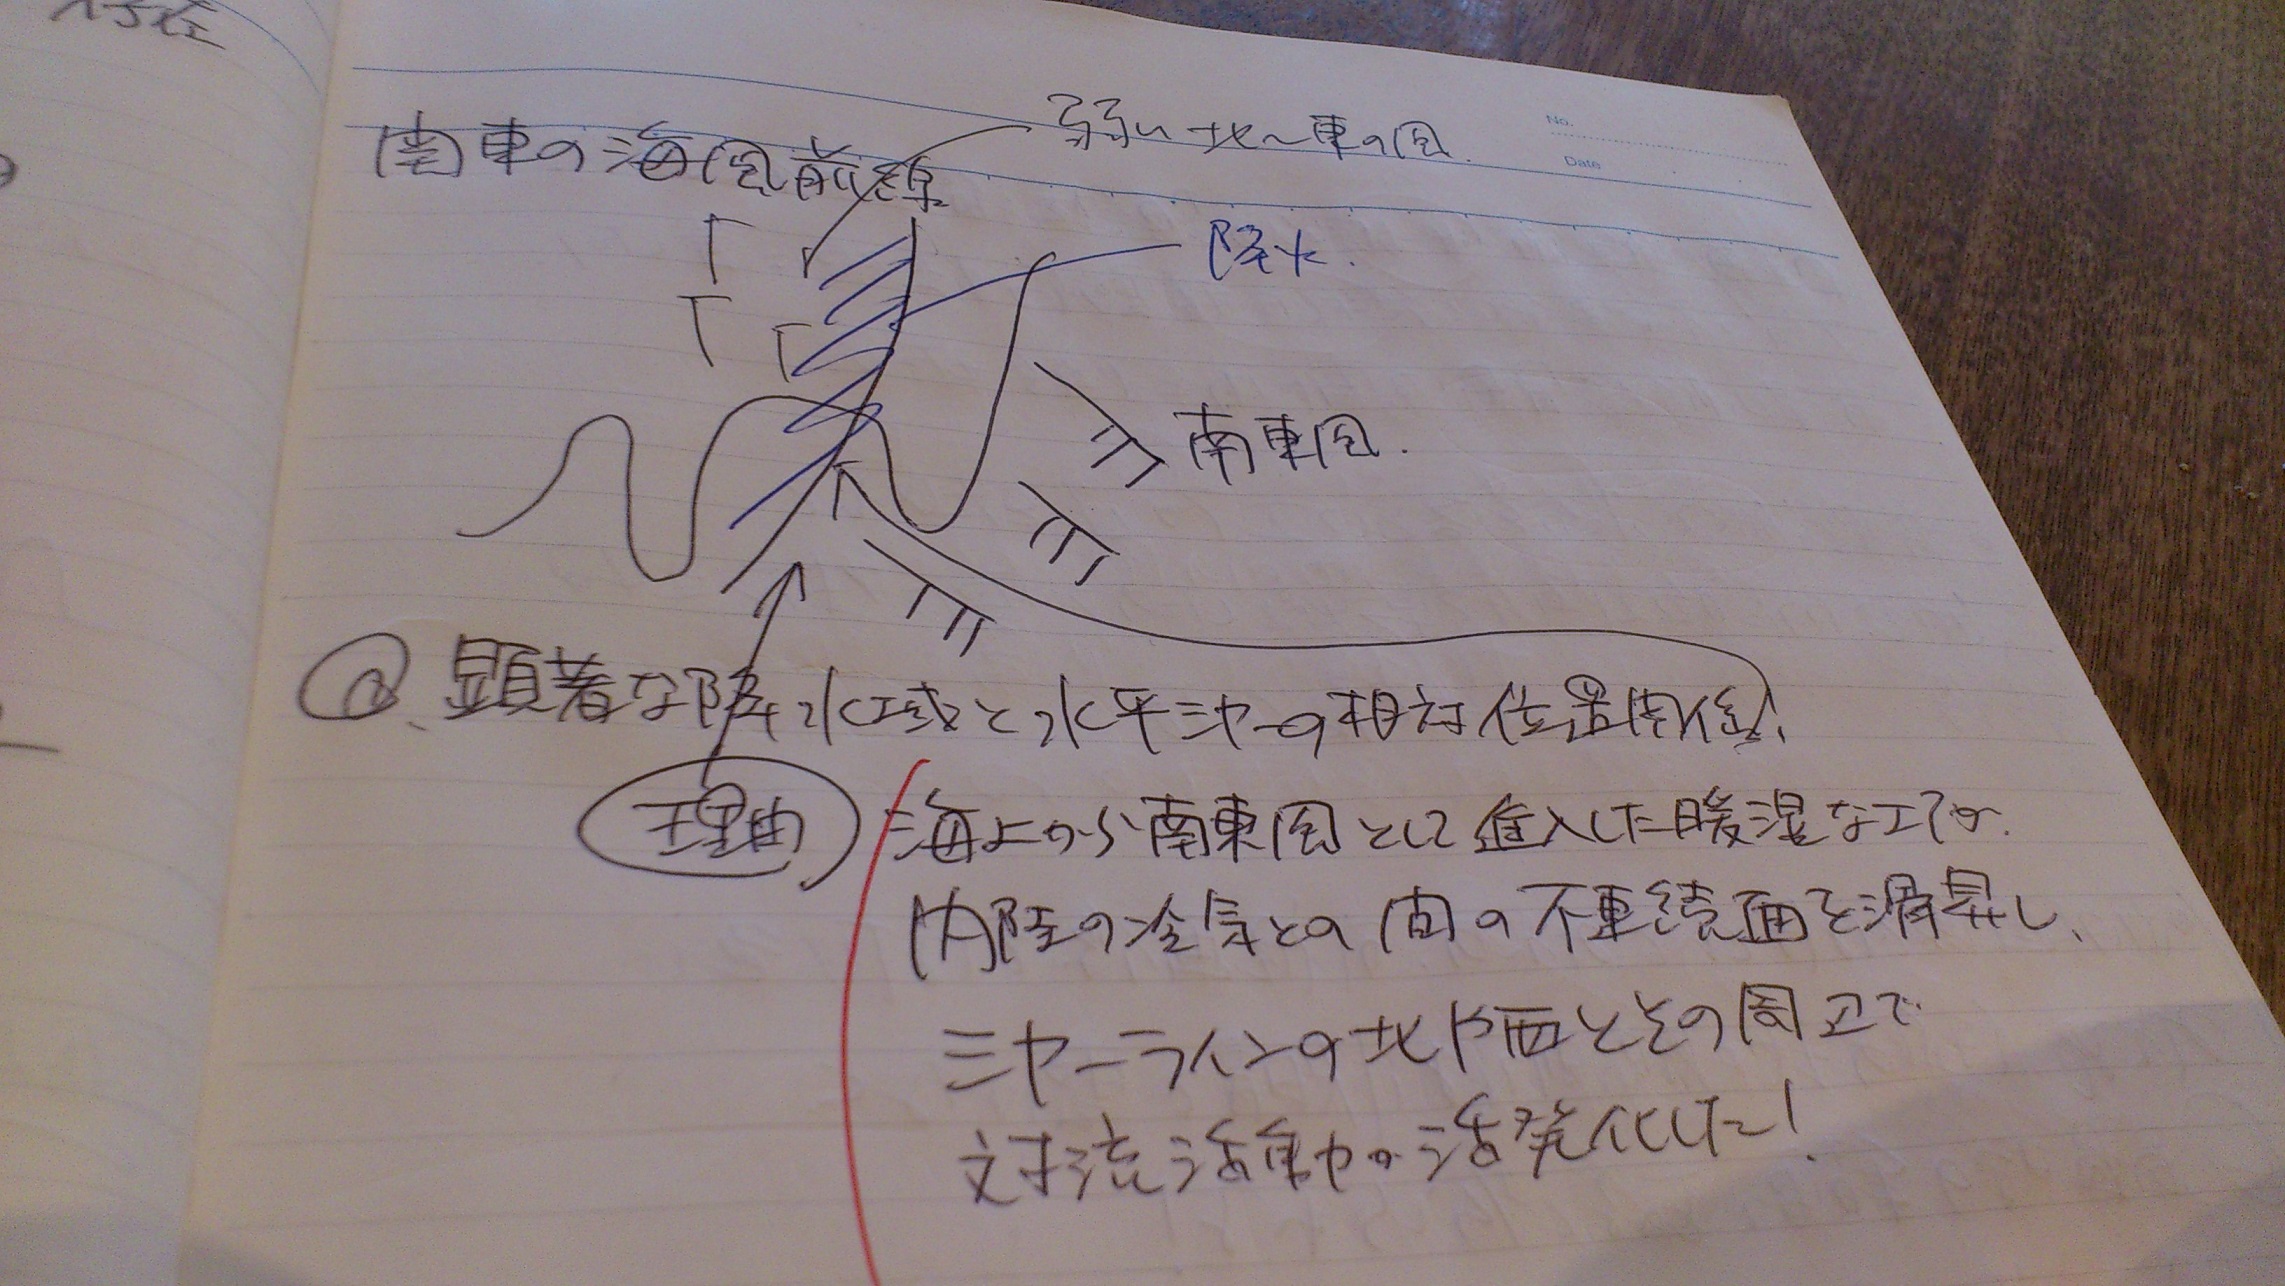 弱い北〜東の風
No.
Date
南東の海風前線
降水.
南東風.
@、顕著な降水域と水平シヤーの相対位置関係!
理由
海上から南東風として進入した暖湿なエアが
内陸の冷気との間の不連続面を滑昇し、
シヤーラインの北や西とその周辺で
対流活動が活発化した!